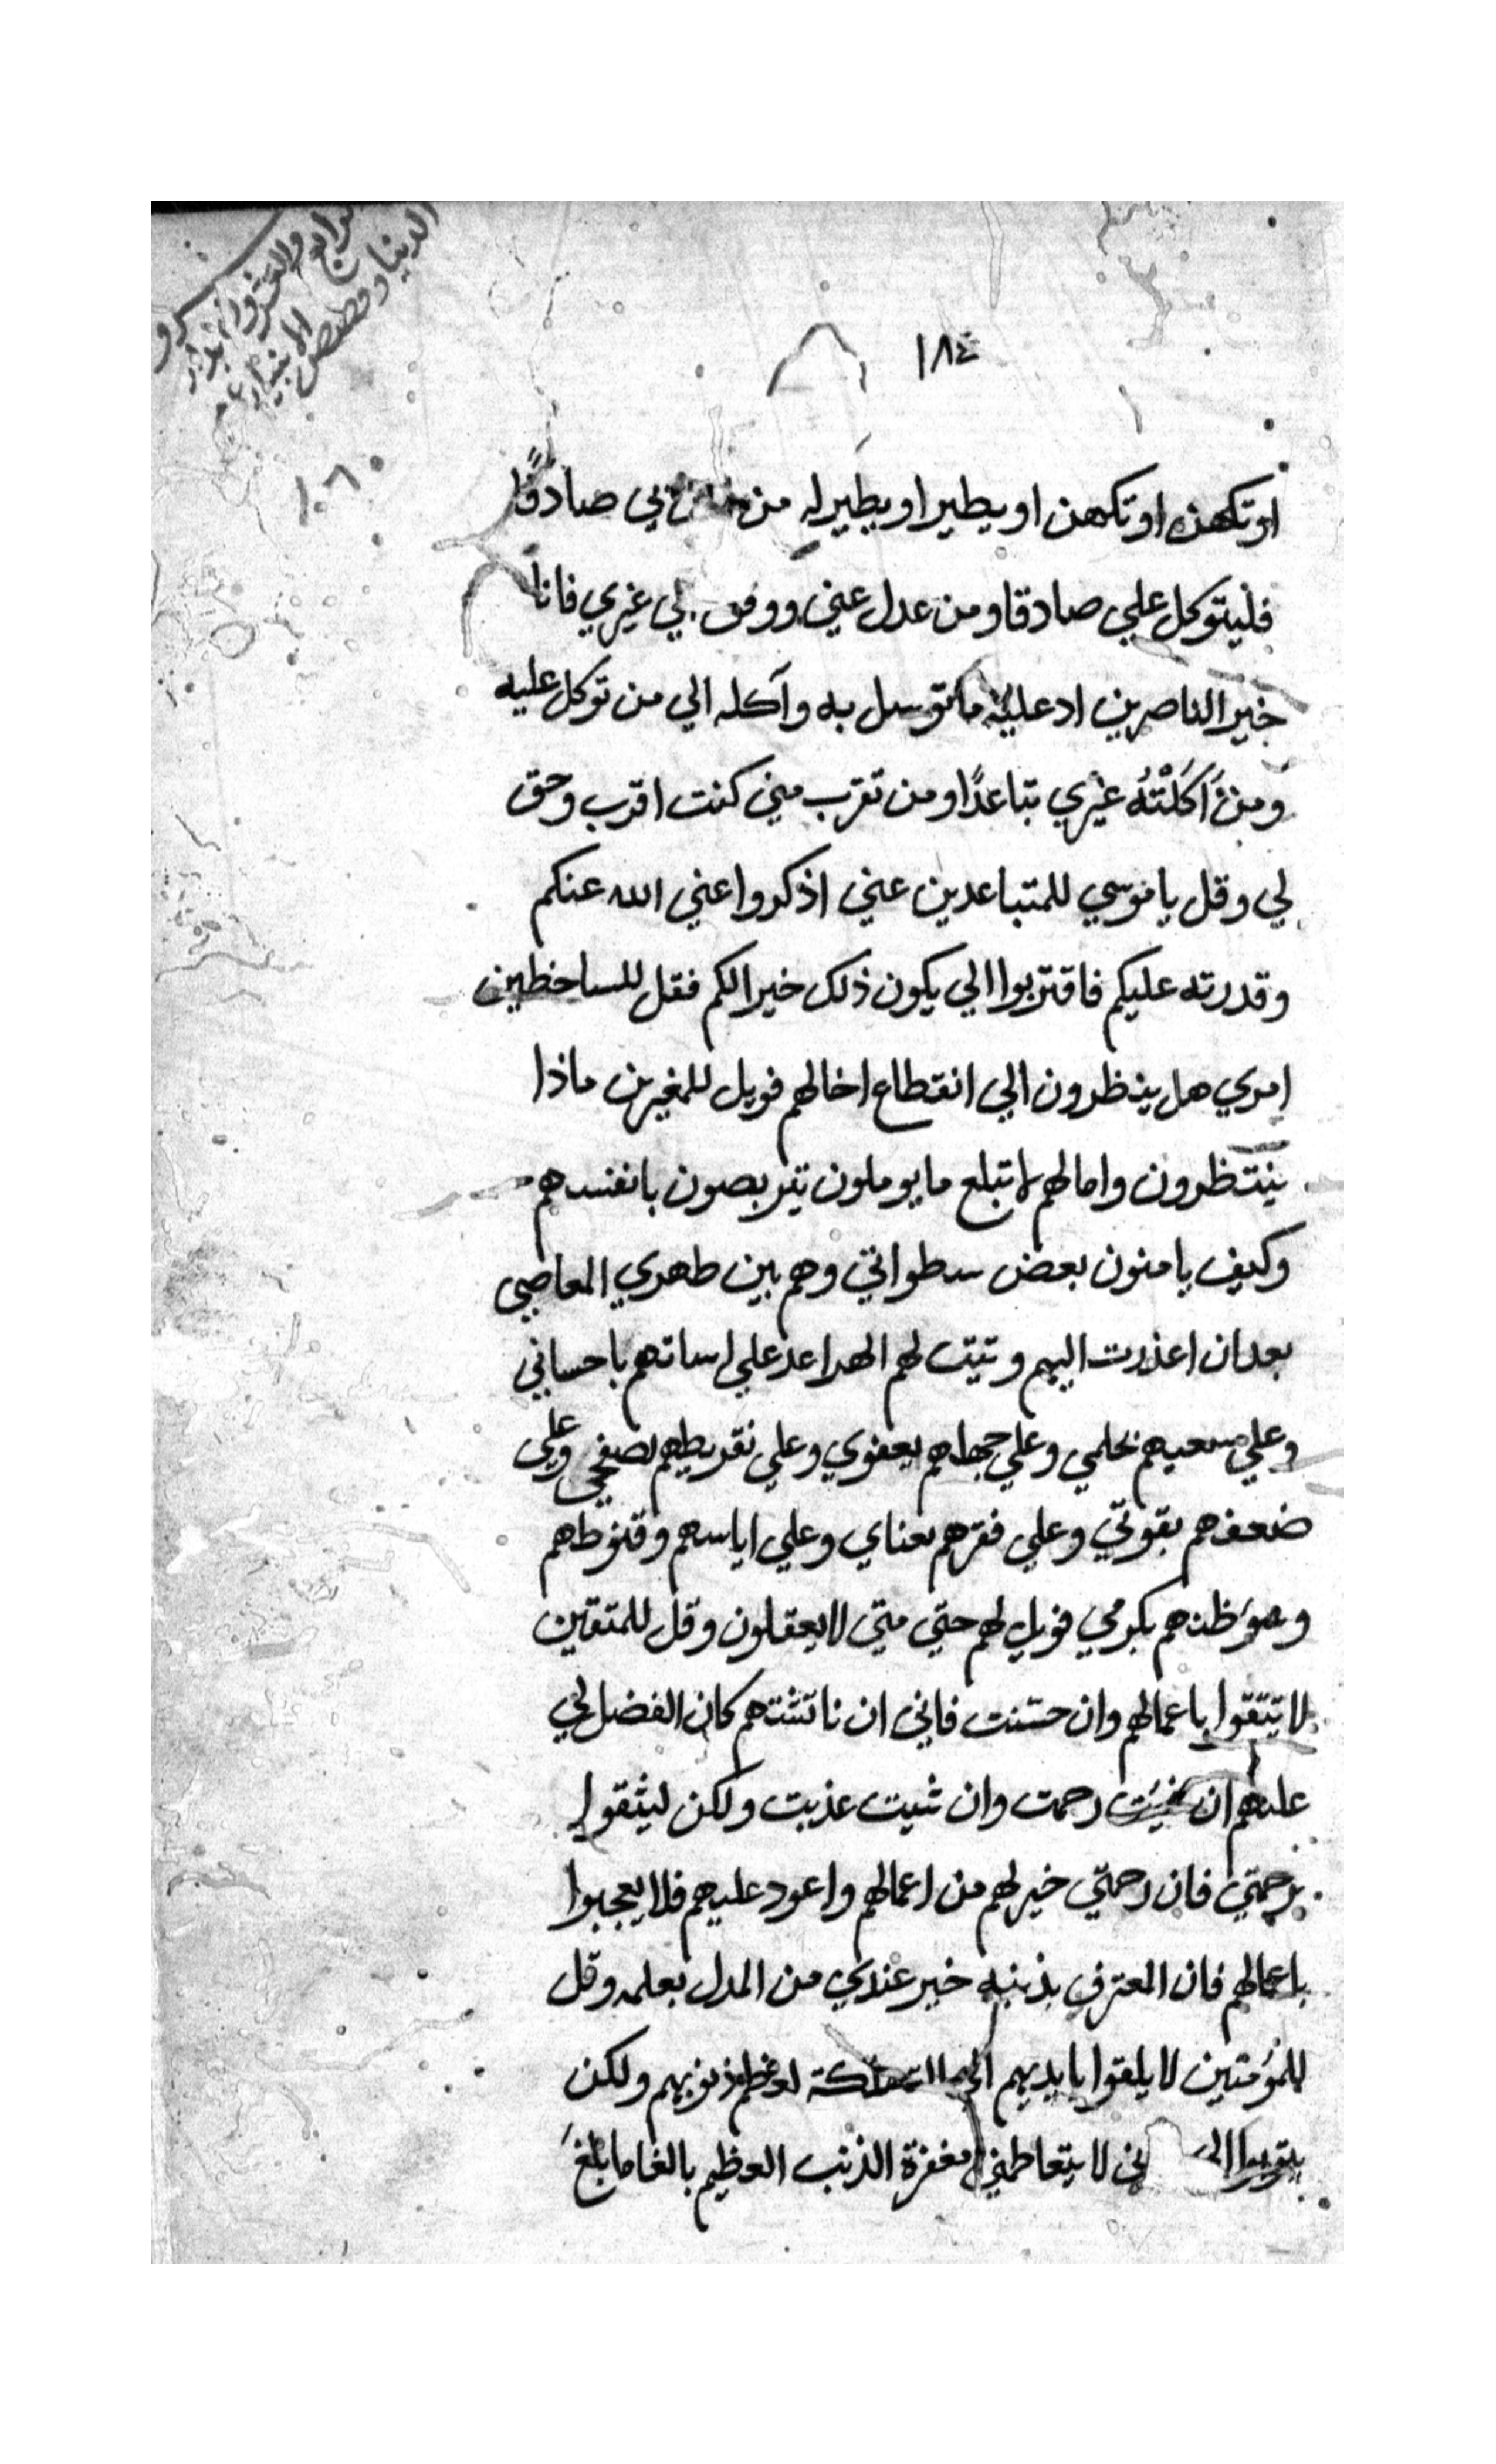 ١٨٤
١٠٦٠
او تكهن او تكهن او يطير او يطير له من بي صادقًا
فليتوكل علي صادقا ومن عدل عني ووفق لي غيري فانا
خير الناصرين ادع ما توسل به وآكله الي من توكل عليه
ومن أَكَلْتُهُ غيري تباعدًا ومن تقرب مني كنت اقرب وحق
لي وقل يا موسي للمتباعدين عني اذكروا عني الله عنكم
وقدرته عليكم فاقتربوا الي يكون ذلك خيرا لكم فقل للساخطين
امري هل ينظرون الي انقطاع اخالهم فويل للمغيرين ماذا
ينتظرون وامالهم لا تبلع ما يوملون تتربصون بانفسهم
وكيف يامنون بعض سطواتي وهم بين طهري المعاصي
بعد ان اعذرت اليهم وتبتت لهم الهدا عد علي اساتهم باحساني
وعلي سعيهم بحلمي وعلي جهلهم بعفوي وعلي تفريطهم بصفحي وعلي
ضعفهم بقوتي وعلي فقرهم بعناي وعلي اياسهم وقنوطهم
وسوء ظنهم بكرمي فويل لهم حتي متي لا يعقلون وقل للمتقين
لا يتقوا باعمالهم وان حسنت فاني ان ناتشتهم كان الفضل لي
عليهم ان شيت رحمت وان شيت عذبت ولكن ليثقوا
برحمتي فان رحمتي خير لهم من اعمالهم واعود عليهم فلا يعجبوا
باعمالهم فان المعترف بذنبه خير عندي من المدل بعلمه وقل
للمؤمنين لا يلقوا بايديهم الي التهلكة لعظم ذنوبهم ولكن
يتوبوا الي ني لا يتعاطمني مغفرة الذنب العظيم بالغا ما بلغ